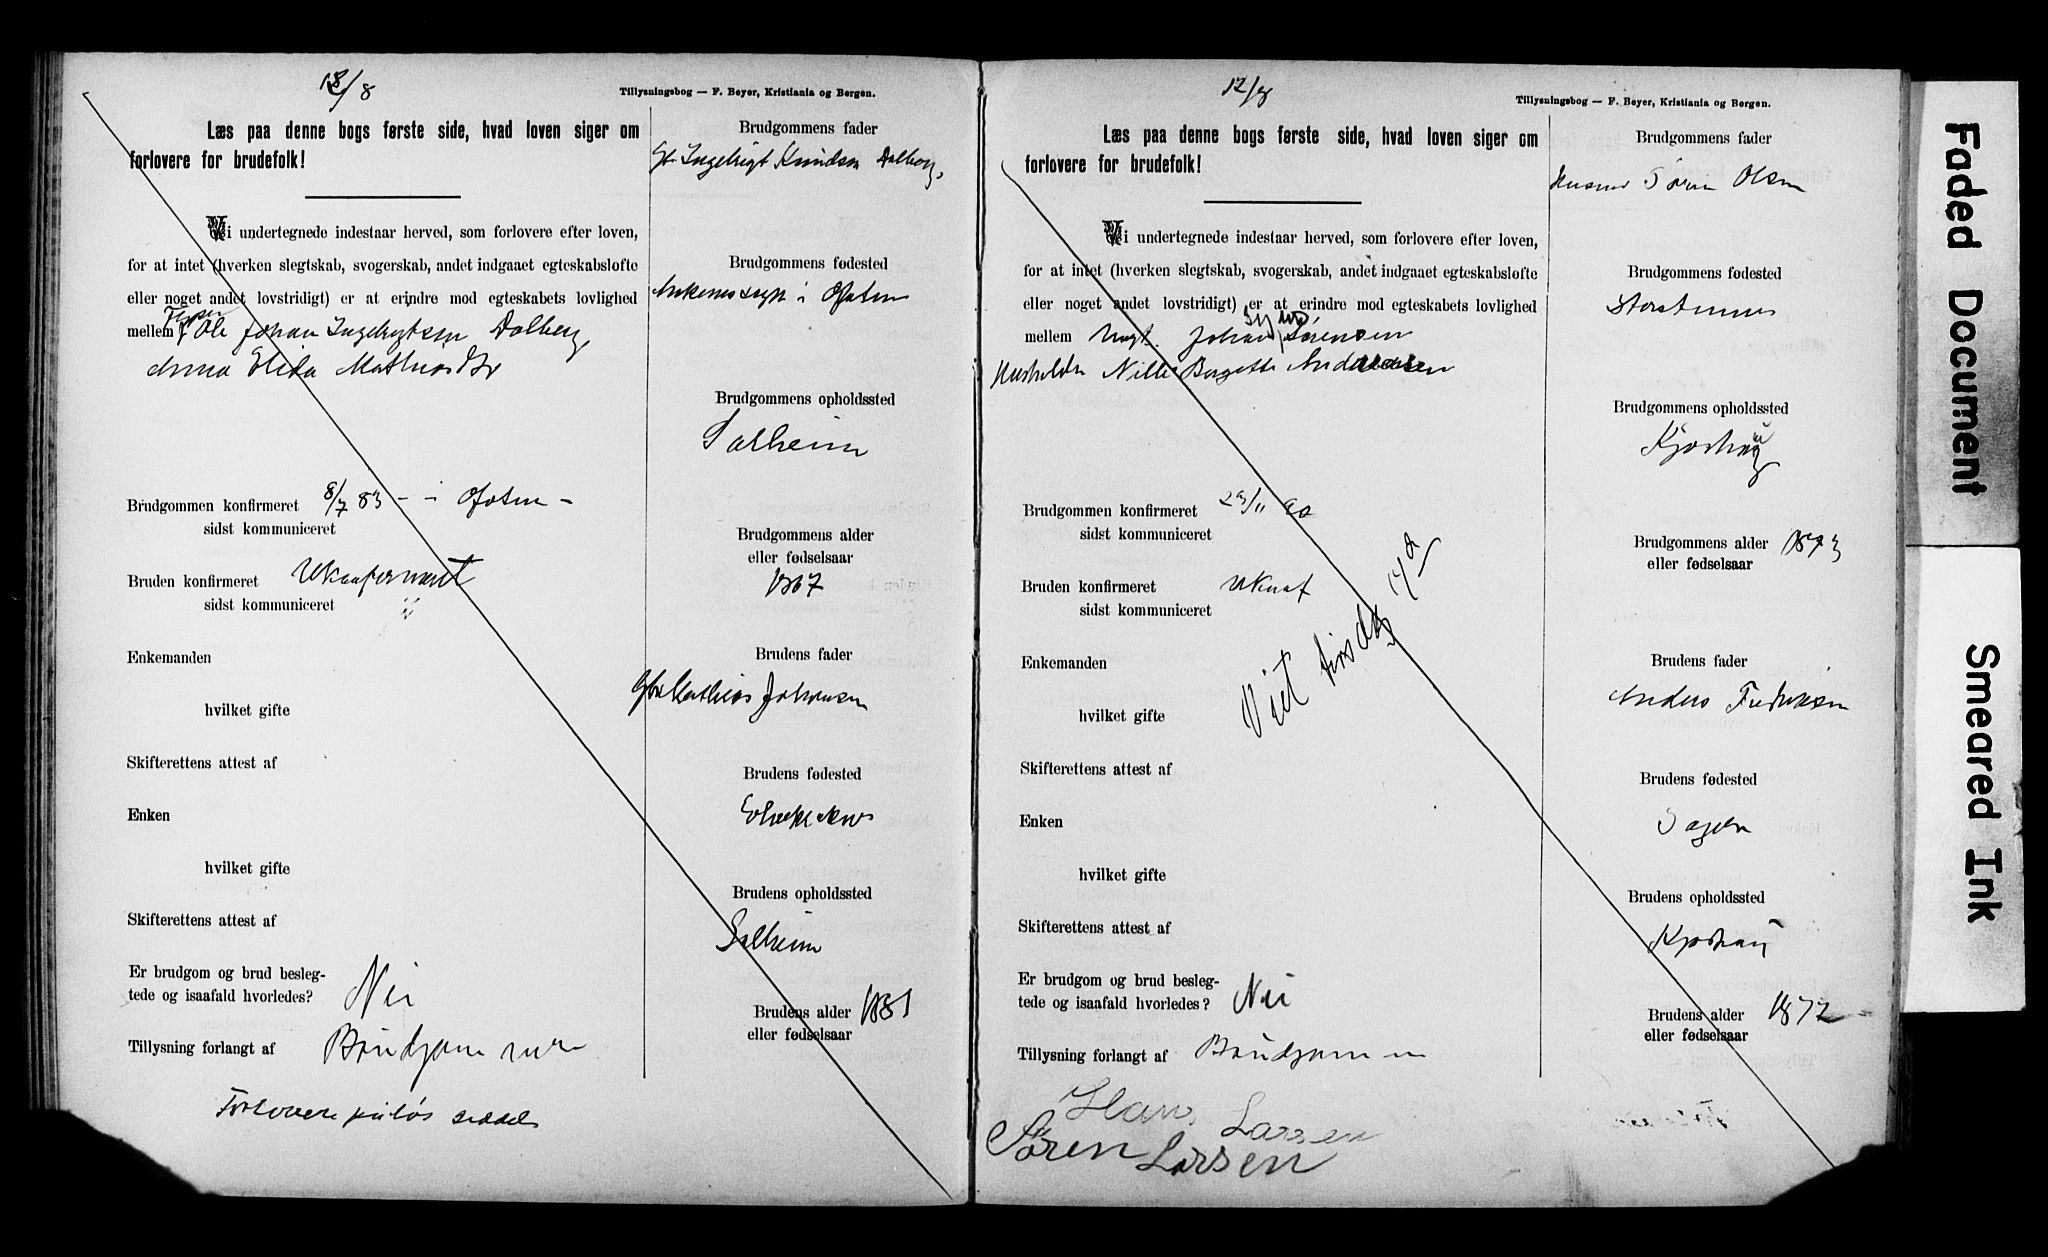 18/8
Tillysningsbog — F. Beyer, Kristiania og Bergen.
Læs paa denne bogs første side, hvad loven siger om
forlovere for brudefolk!
Vi undertegnede indestaar herved, som forlovere efter loven,
for at intet (hverken slegtskab, svogerskab, andet indgaaet egteskabsløfte
eller noget andet lovstridigt) er at erindre mod egteskabets lovlighed
mellem Ole Johan Ingebrigtsen Dalberg
Anna Elida Mathiasdr
Brudgommen konfirmeret 8/7 83 - i Ofoten -
sidst kommuniceret
Bruden konfirmeret Ukonfirmeret
sidst kommuniceret
Enkemanden
hvilket gifte
Skifterettens attest af
Enken
hvilket gifte
Skifterettens attest af
Er brudgom og brud besleg-
tede og isaafald hvorledes? Nei
Tillysning forlangt af Brudgommen
Forlovere paa løs seddel
Brudgommens fader
Ingebrigt Knudsen Dalberg
Brudgommens fødested
Ankenes sogn i Ofoten
Brudgommens opholdssted
Solheim
Brudgommens alder
eller fødselsaar
1867
Brudens fader
Mathias Johansen
Brudens fødested
Brudens opholdssted
Solheim
Brudens alder 1881
eller fødselsaar
12/8
Tillysningsbog — F. Beyer, Kristiania og Bergen.
Læs paa denne bogs første side, hvad loven siger om
forlovere for brudefolk!
Vi undertegnede indestaar herved, som forlovere efter loven,
for at intet (hverken slegtskab, svogerskab, andet indgaaet egteskabsløfte
eller noget andet lovstridigt) er at erindre mod egteskabets lovlighed
mellem Ungk. Johan Sørensen
Nille Bergette Andersen
Brudgommen konfirmeret 90
sidst kommuniceret
Bruden konfirmeret Ukonf
sidst kommuniceret
Viet tirsdag
Enkemanden
hvilket gifte
Skifterettens attest af
Enken
hvilket gifte
Skifterettens attest af
Er brudgom og brud besleg-
tede og isaafald hvorledes? Nei
Tillysning forlangt af Brudgommen
Hans Larsen
Søren Larsen
Brudgommens fader
Husmd Søren Olsen
Brudgommens fødested
Storstennes
Brudgommens opholdssted
Kjoshaug
Brudgommens alder 1873
eller fødselsaar
Brudens fader
Anders Fredriksen
Brudens fødested
Sagen
Brudens opholdssted
Kjoshaug
Brudens alder 1872
eller fødselsaar
Faded Document
Smeared Ink